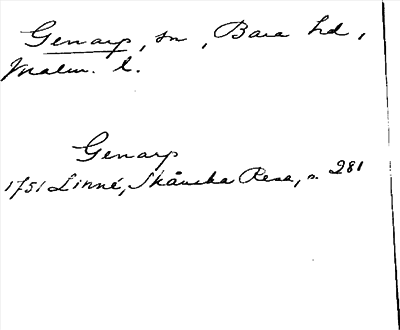 Genarp, sn, Bara hd,
Malm. l.
Genarp
1751 Linné, Skånska Resa, s. 281